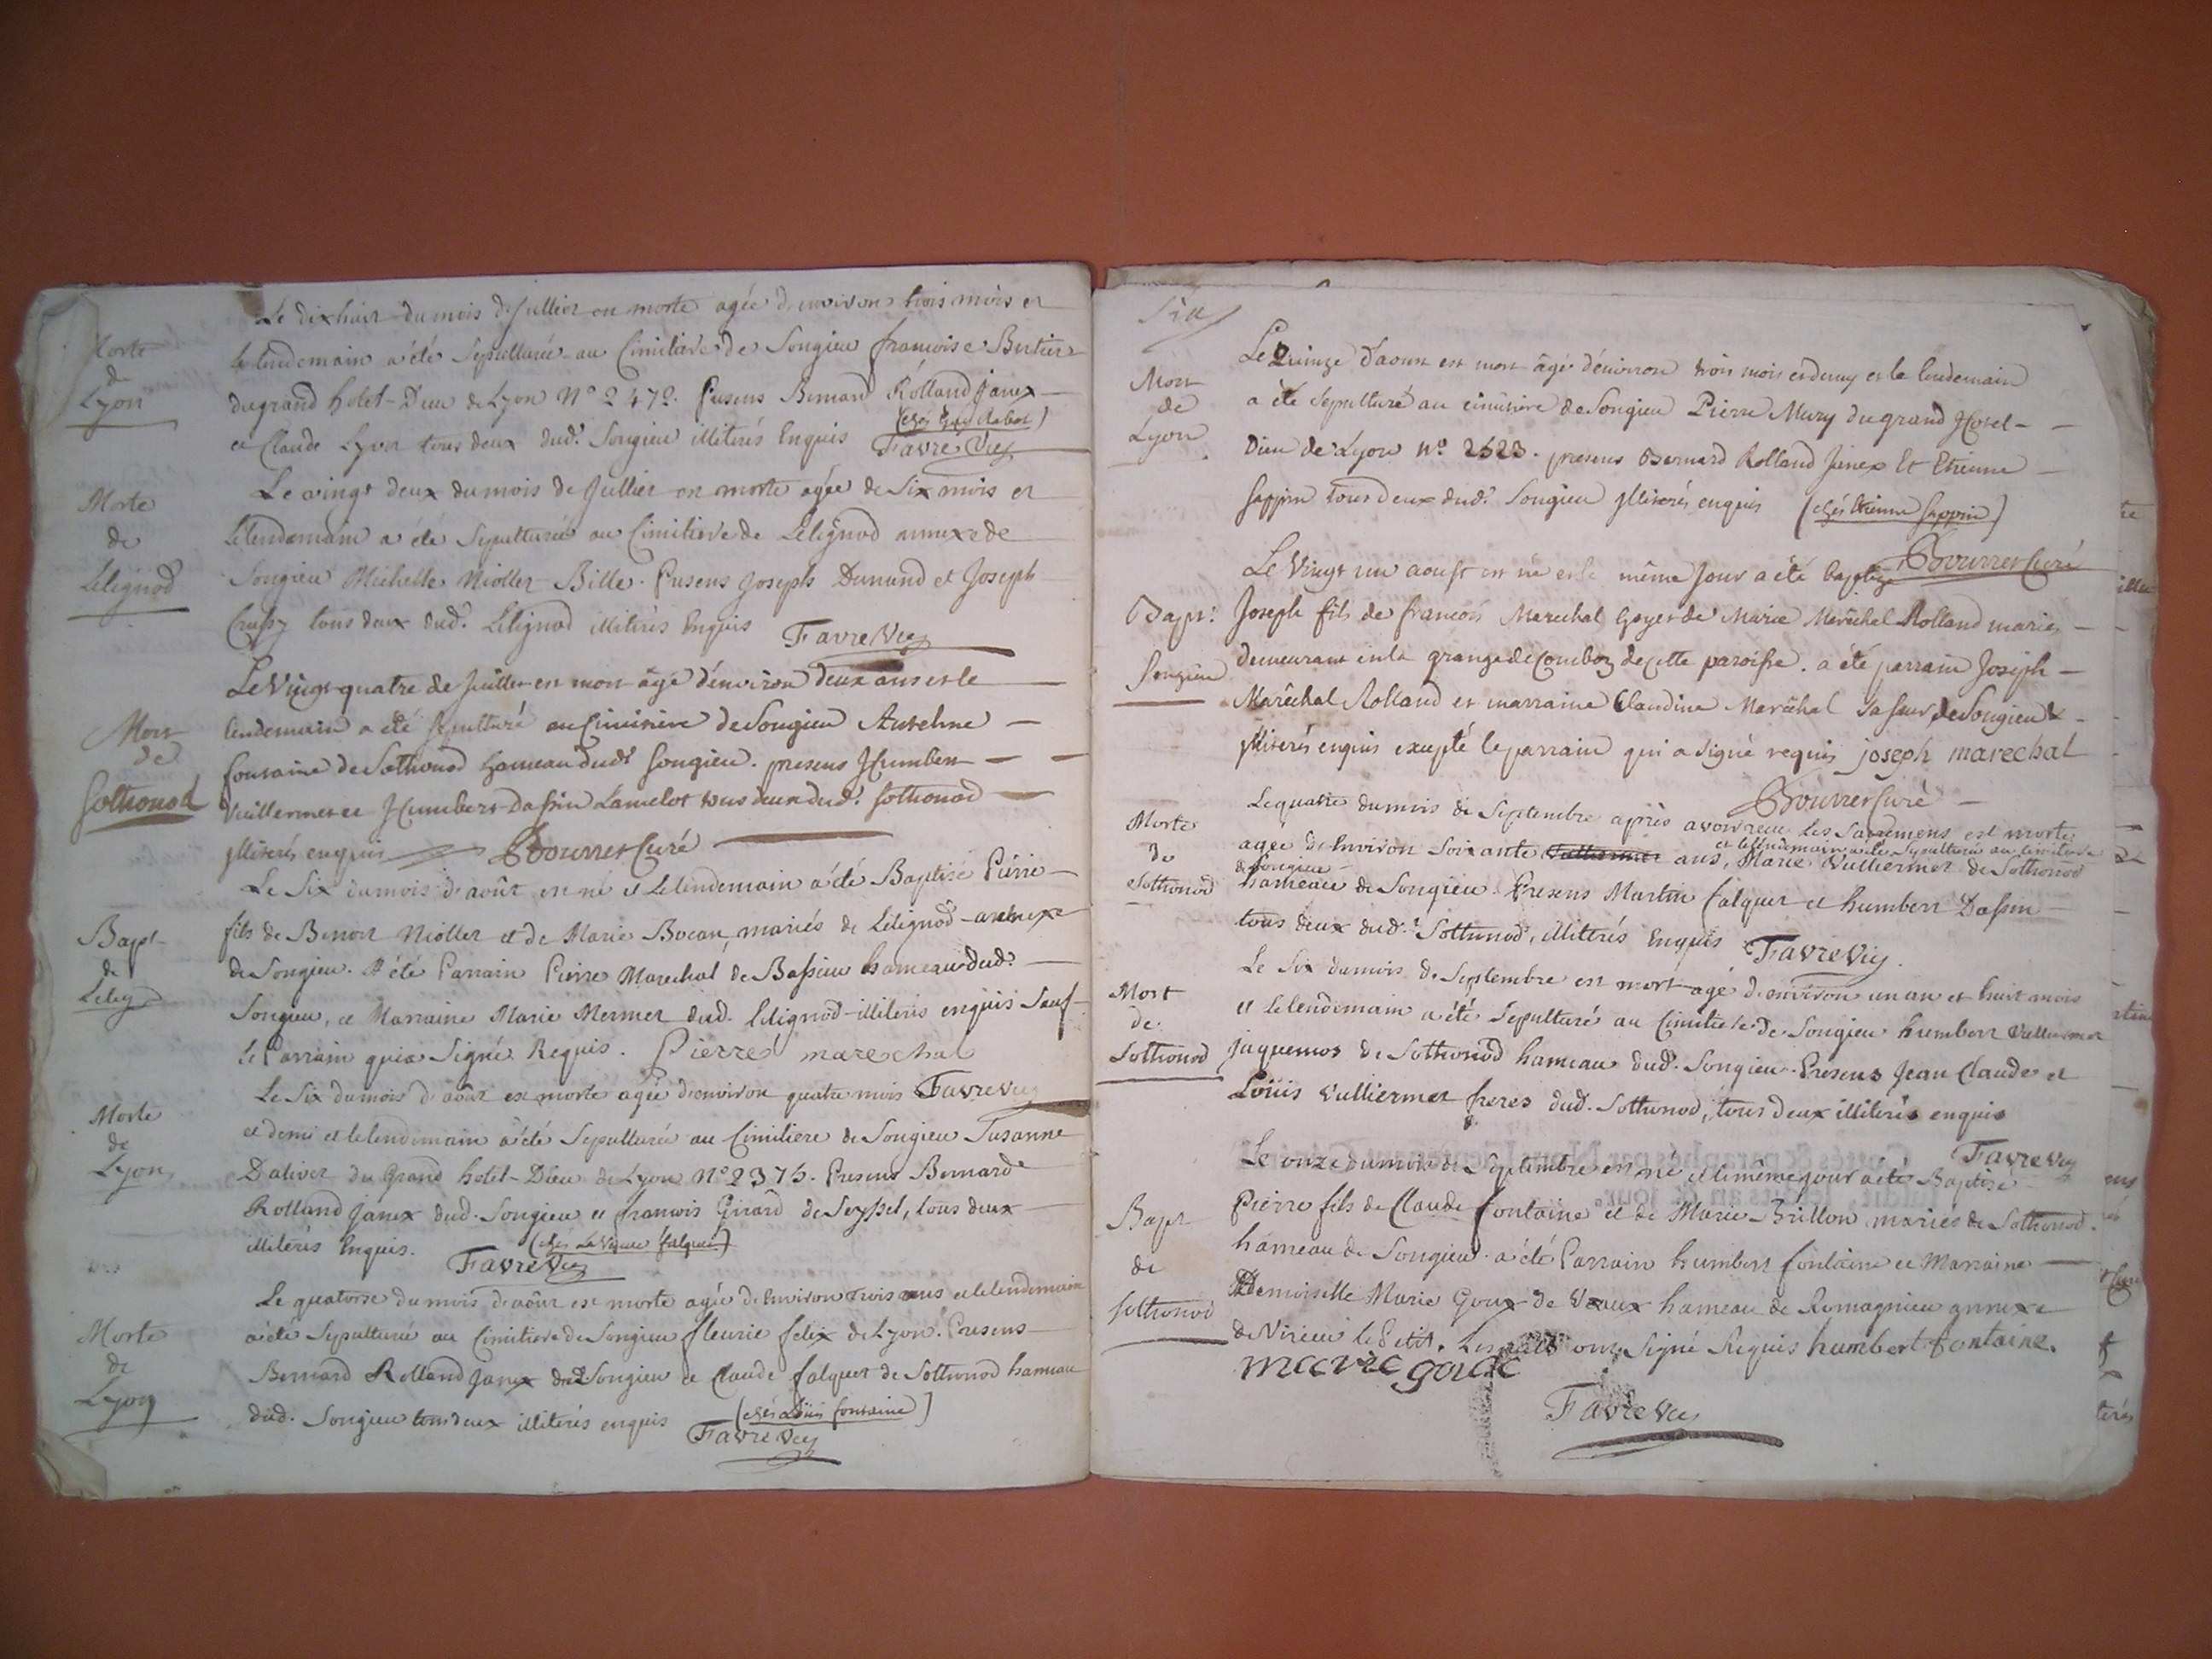 Morte
de
Lyon
Le dix huit du mois de Juillet est morte agée d'environ trois mois et
le lendemain a été Sepulturée au Cimitiere de Songieu francoise Bertier
du grand hotel-Dieu de Lyon N° 2472. Presens Bernard Rolland Janex
et Claude Lyvet tous deux dud. Songieu illiterés Enquis
Favre Vic
Morte
de
Lilignod
Le vingt deux du mois de Juillet est morte agée de Six mois et
le lendemain a été Sepulturée au Cimitiere de Lilignod annexe de
Songieu Michelle Niollet Bille. Presens Joseph Dunund et Joseph
tous deux dud. Lilignod illiterés Enquis
Favre Vic
Mort
de
Sothonod
Le Vingt quatre de Juillet est mort âgé d'environ deux ans et le
lendemain a été sepulturé au Cimitiere de Songieu Antelme
fontaine de Sothonod hameau dud. Songieu. presens Humbert
Vuillermet et Humbert Dassin Lamelot tous deux dud. Sothonod
illiterés enquis Bourret Curé
Bapt
de
Lilig
Le Six du mois d'août est né et le lendemain a été Baptisé Pierre
fils de Benoit Niollet et de Marie Bocan, mariés de Lilignod annexe
de Songieu. A été Parrain Pierre Marechal de Bassieu hameau dud.
Songieu, et Marraine Marie Mermet dud. Lilignod illiterés enquis Sauf
le Parrain qui a Signé Requis. Pierre marechal
Favre Vic
Morte
de
Lyon
Le Six du mois d'août est morte agée d'environ quatre mois
et demi et le lendemain a été Sepulturée au Cimitiere de Songieu Susanne
Dalivet du Grand hotel-Dieu de Lyon N° 2375. Presens Bernard
Rolland Janex dud. Songieu et francois Girard de Seyssel, tous deux
illiterés Enquis. (chés La Veuve falquet)
Favre Vic
Morte
de
Lyon
Le quatorse du mois d'août est morte agée d'Environ trois ans et le lendemain
a été Sepulturée au Cimitiere de Songieu fleurie felix de Lyon. Presens
Bernard Rolland Janex dud Songieu et Claude falquet de Sothonod hameau
dud. Songieu tous deux illiterés enquis (chés Loüis fontaine)
Favre Vic
Six
Mort
de
Lyon
Le Quinze d'aoust est mort âgé d'environ trois mois et demy et le lendemain
a été sepulturé au cimitiere de Songieu Pierre Mury du grand Hotel-
Dieu de Lyon N° 2623. presens Bernard Rolland Janex Et Etienne
Sappin tous deux dud. Songieu illiterés enquis (chés Etienne Sappin)
Bourret Curé
Bapt.
Songieu
Le Vingt un aoust est né et le même Jour a été baptizé
Joseph fils de francois Marechal Goyet de Marie Maréchal Rolland mariés
demeurant en la grange de Comboz de cette paroisse. a été parrain Joseph
Maréchal Rolland et marraine Claudine Maréchal sa sœur de Songieu
illiterés enquis excepté le parrain qui a signé requis joseph marechal
Bourret Curé
Morte
de
Sothonod
Le quatre du mois de Septembre après avoir reçu les Sacremens est morte
et le lendemain a été Sepulturée au Cimitiere
agée d'Environ Soixante ans, Marie Vulliermet de Sothonod
de Songieu
hameau de Songieu. Presens Martin falquet et humbert Dassin
tous deux dud. Sothonod, illiterés Enquis Favre Vic
Mort
de
Sothonod
Le Six du mois de Septembre est mort agé d'environ un an et huit mois
et le lendemain a été Sepulturé au Cimitiere de Songieu humbert Vulliermet
Jaquemos de Sothonod hameau dud. Songieu. Presens Jean Claude et
Loüis Vulliermet freres dud. Sothonod, tous deux illiterés enquis
Favre Vic
Bapt
de
Sothonod
Le onze du mois de Septembre est né et le même jour a été Baptisé
Pierre fils de Claude fontaine et de Marie Brillon mariés de Sothonod.
hameau de Songieu. a été Parrain humbert fontaine et Marraine
Demoiselle Marie Goux de Vaux hameau de Romagnieu annexe
de Virieu le Petit. ont Signé Requis humbert fontaine.
Favre Vic